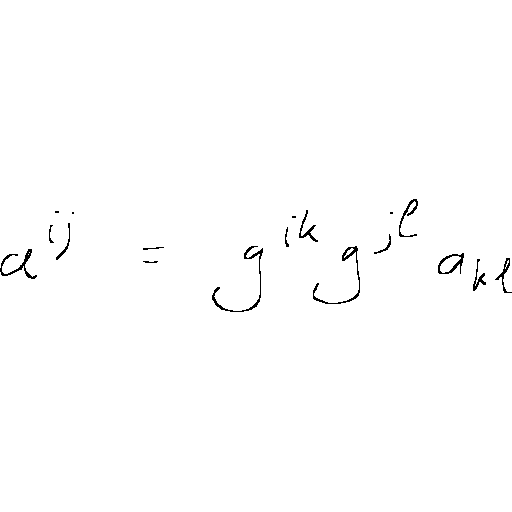 a^{ij} = g^{ik} g^{jl} a_{kl}